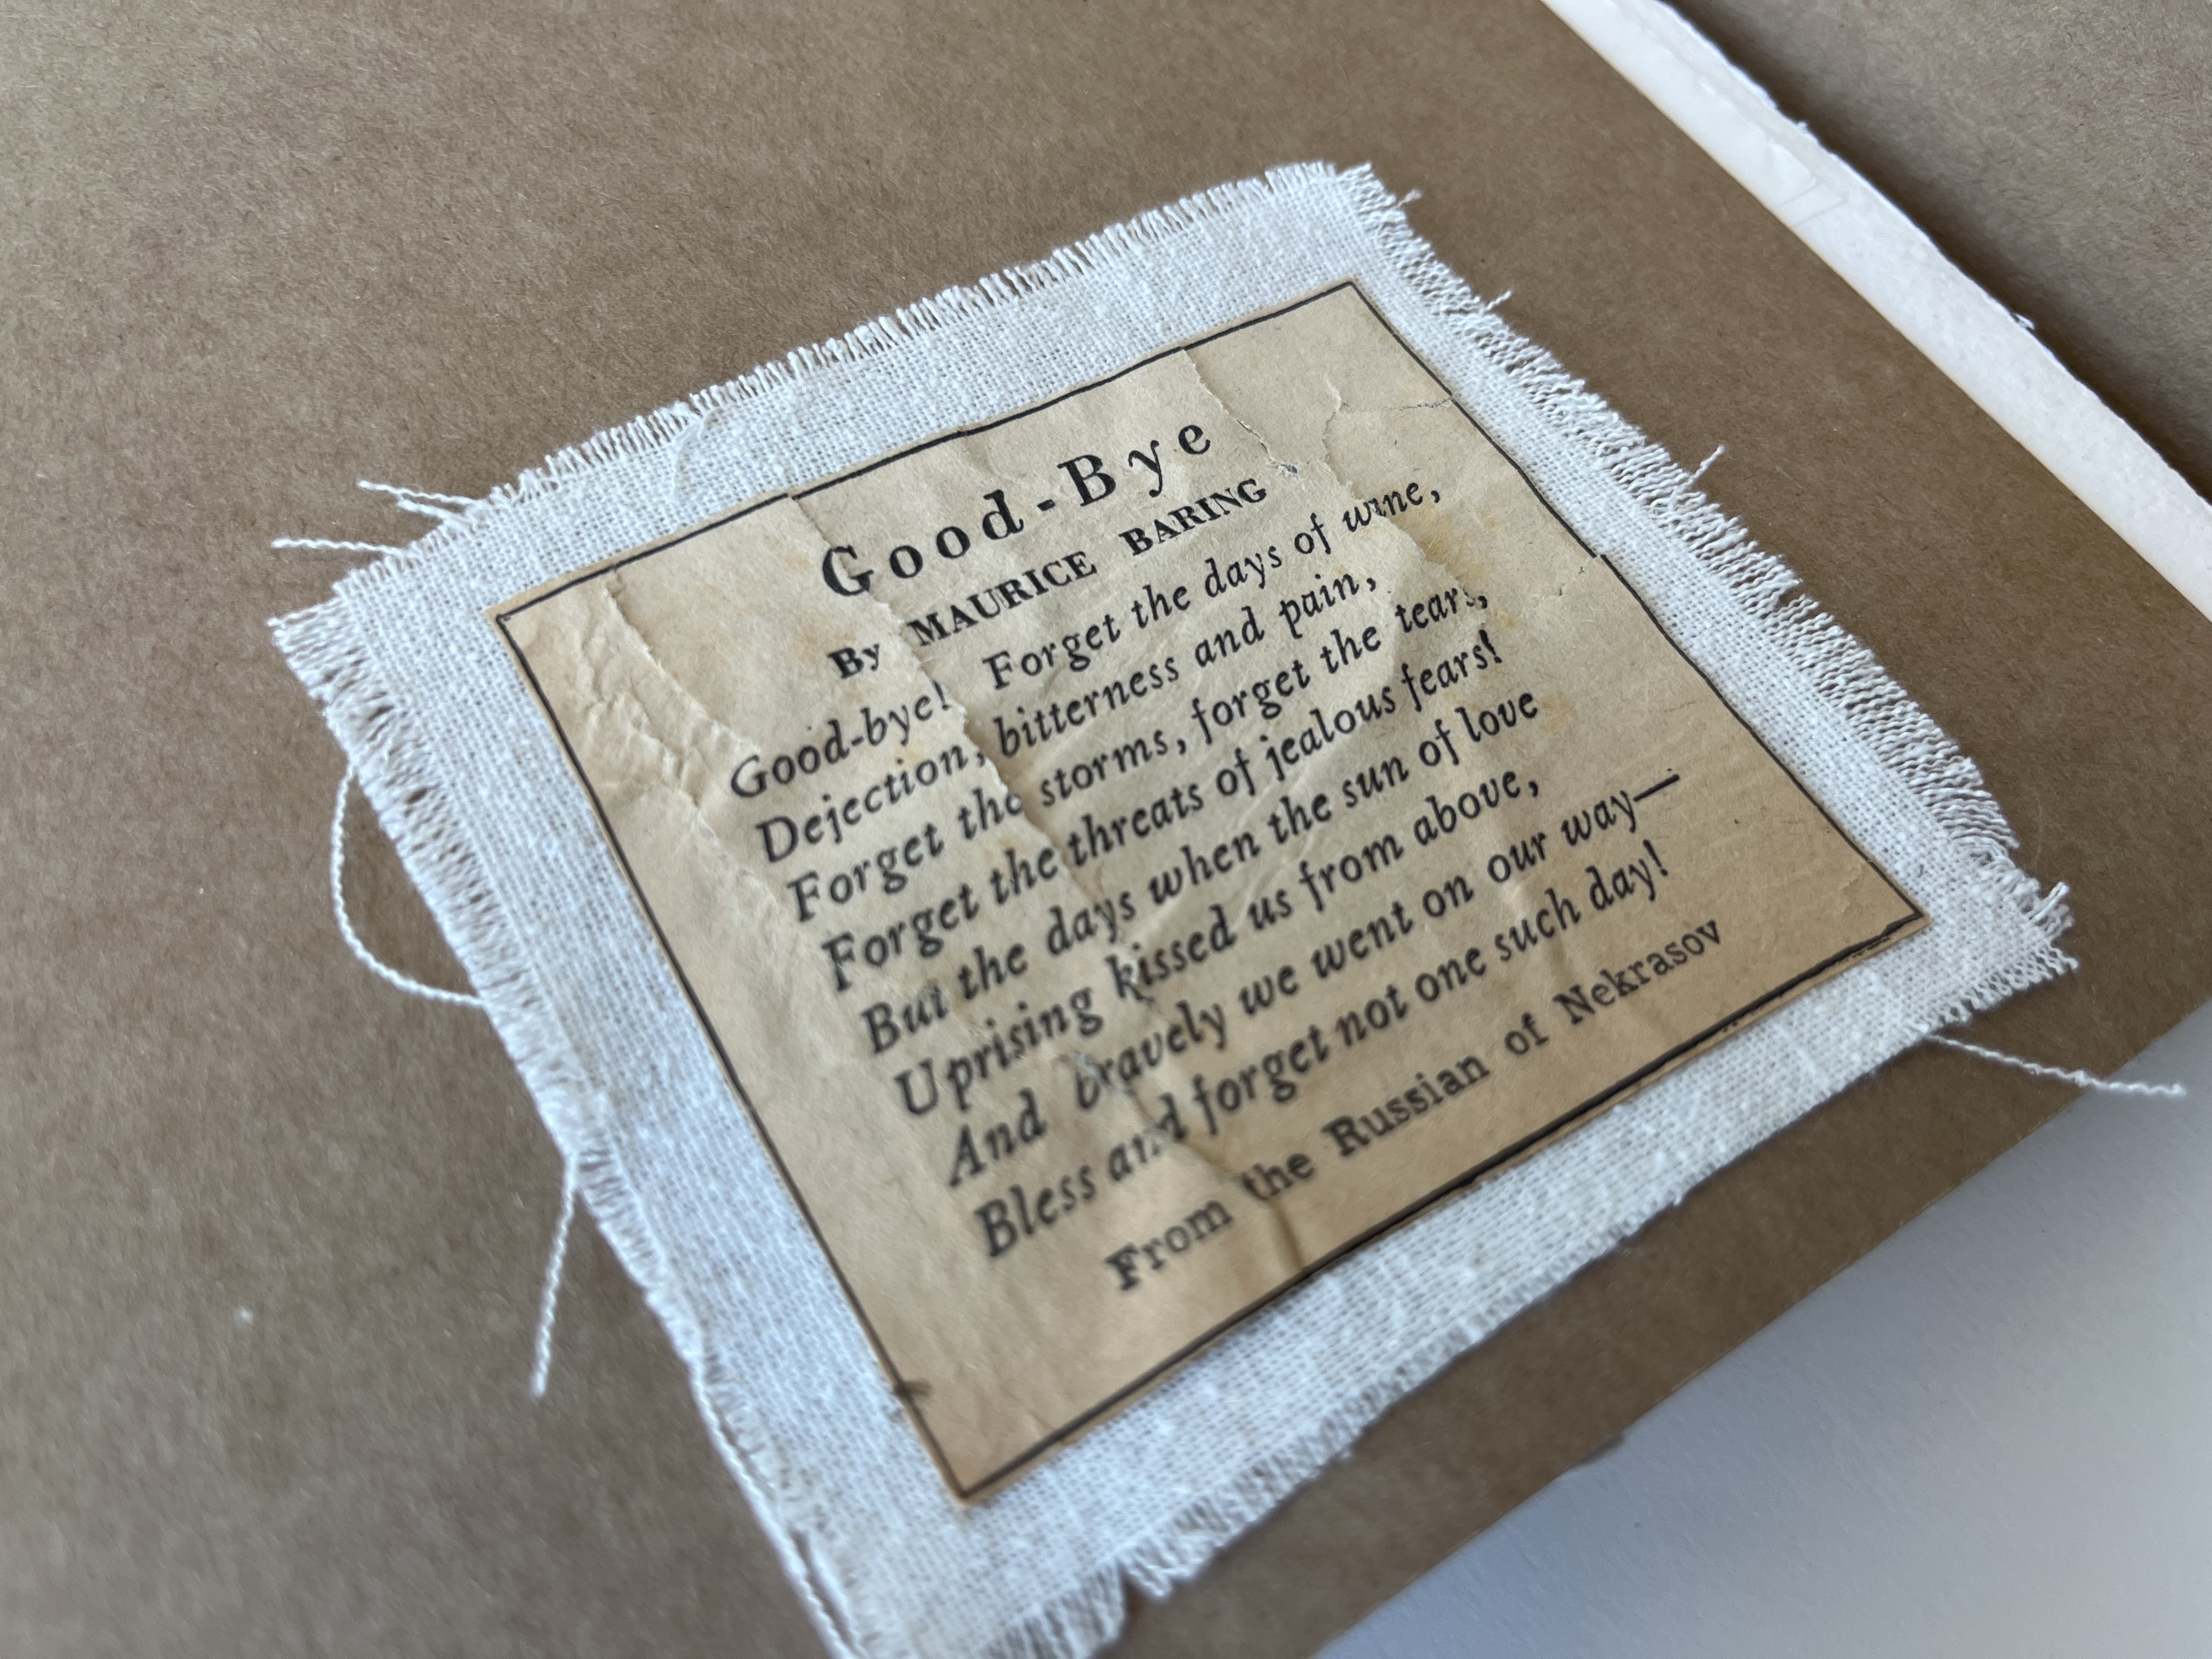 Good-Bye
By MAURICE BARING
Good-bye! Forget the days of wine,
Dejection, bitterness and pain,
Forget the storms, forget the tears,
Forget the threats of jealous fears!
But the days when the sun of love
Uprising kissed us from above,
And bravely we went on our way—
Bless and forget not one such day!
From the Russian of Nekrasov